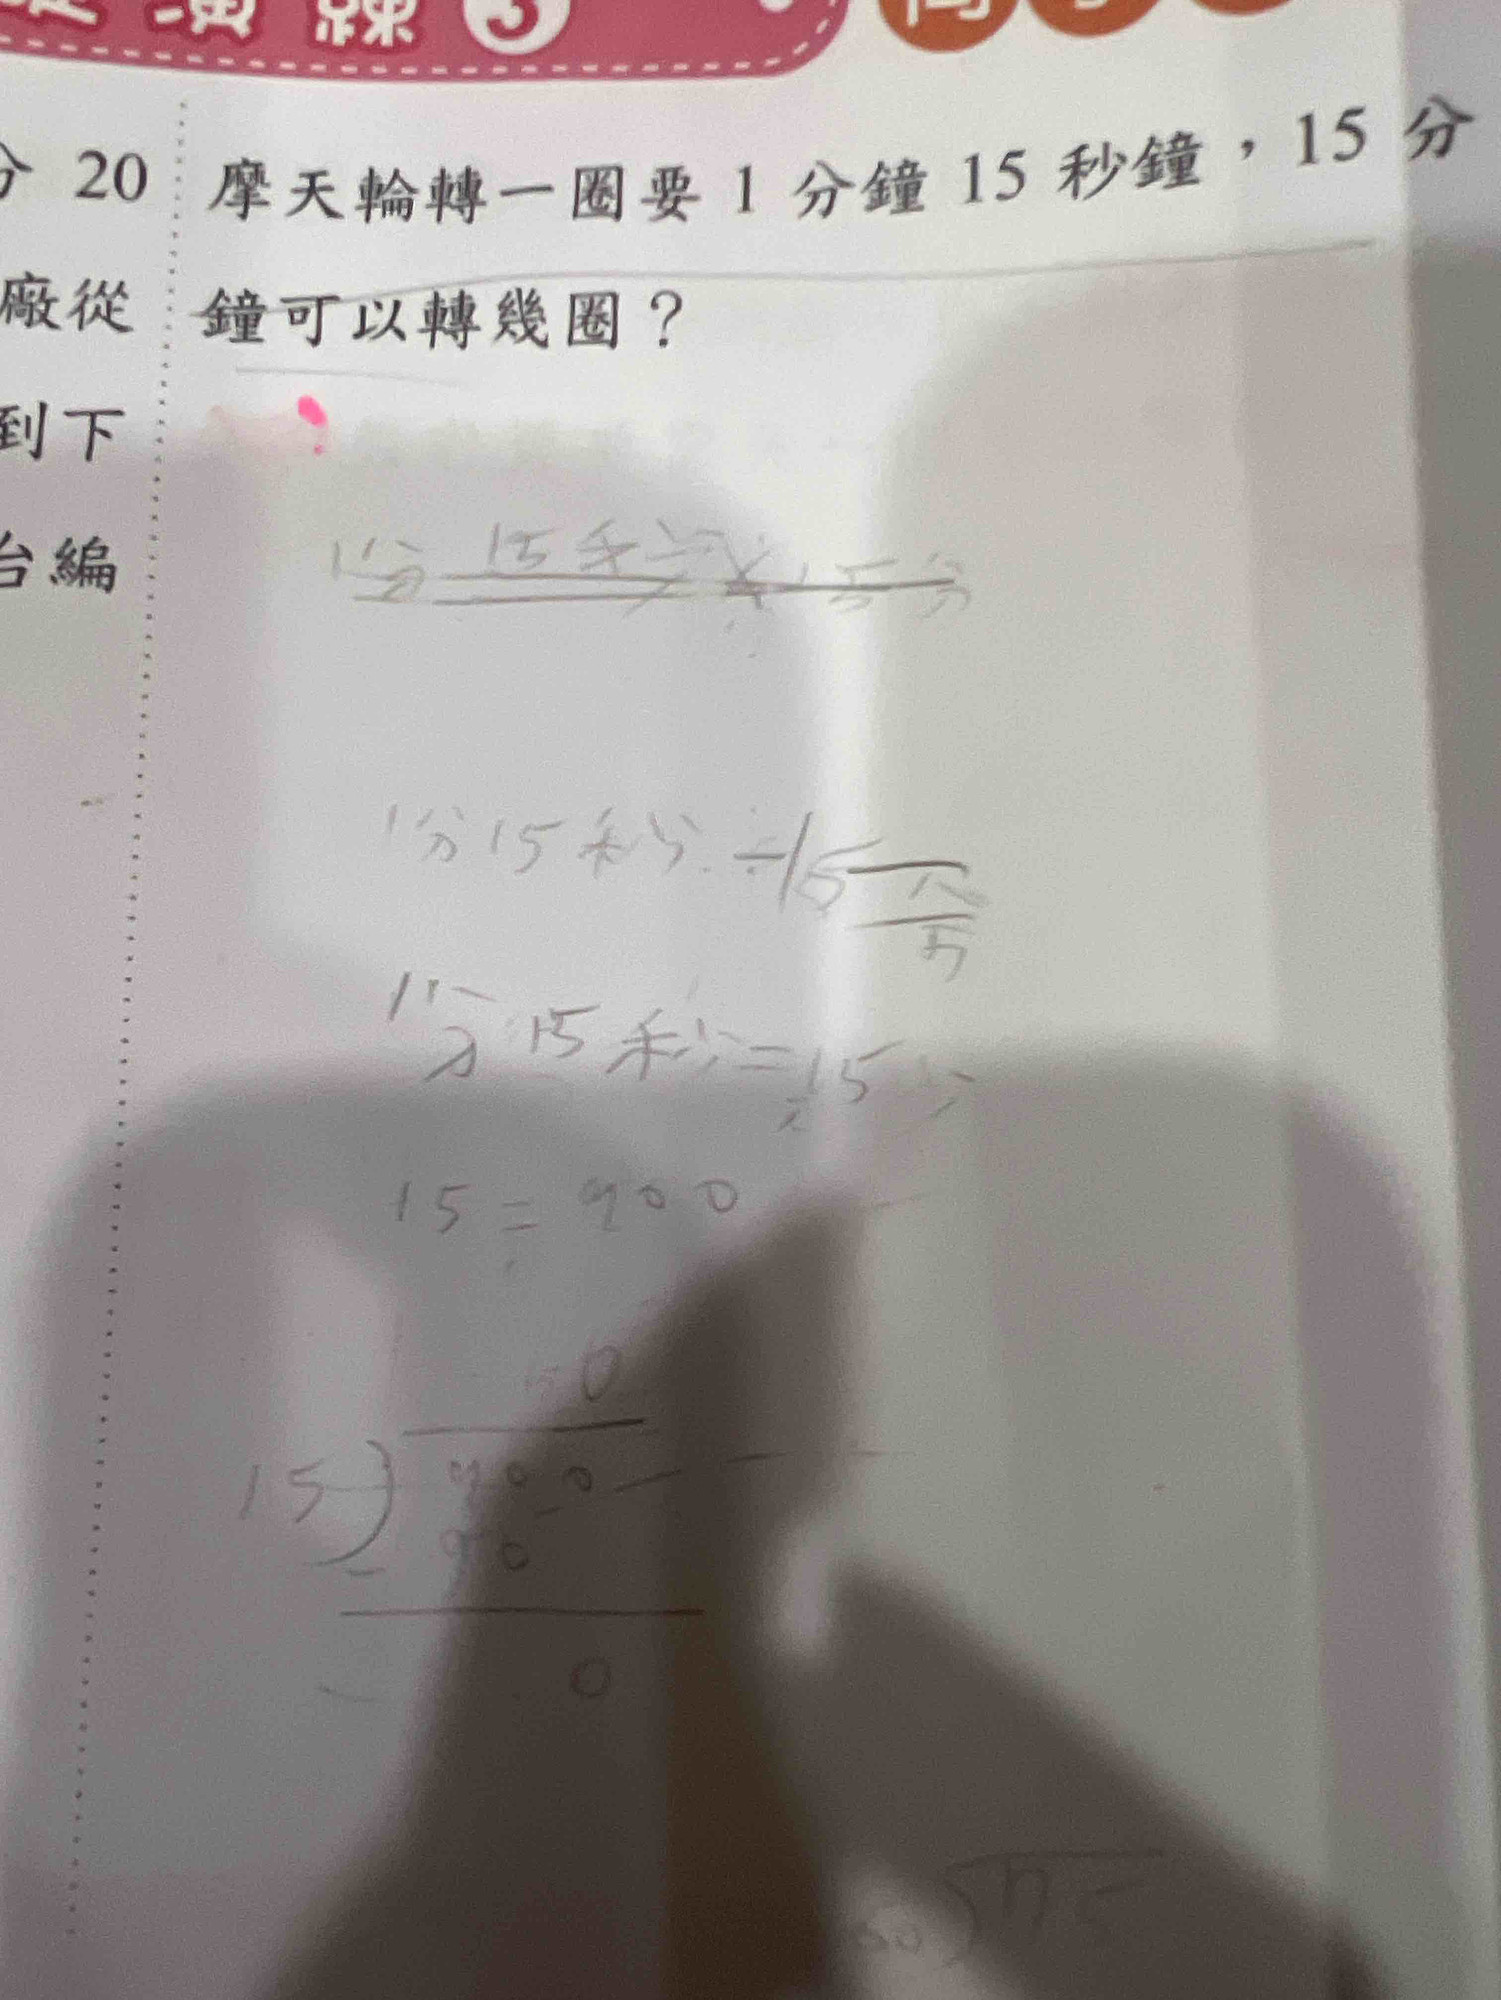 演練 3
分 20
廠從
到下
台編
摩天輪轉一圈要 1 分鐘 15 秒鐘，15 分
鐘可以轉幾圈？
1分 15秒÷15分
1分15秒÷15
1分15秒=15分
15=900
0
15)900
90
0